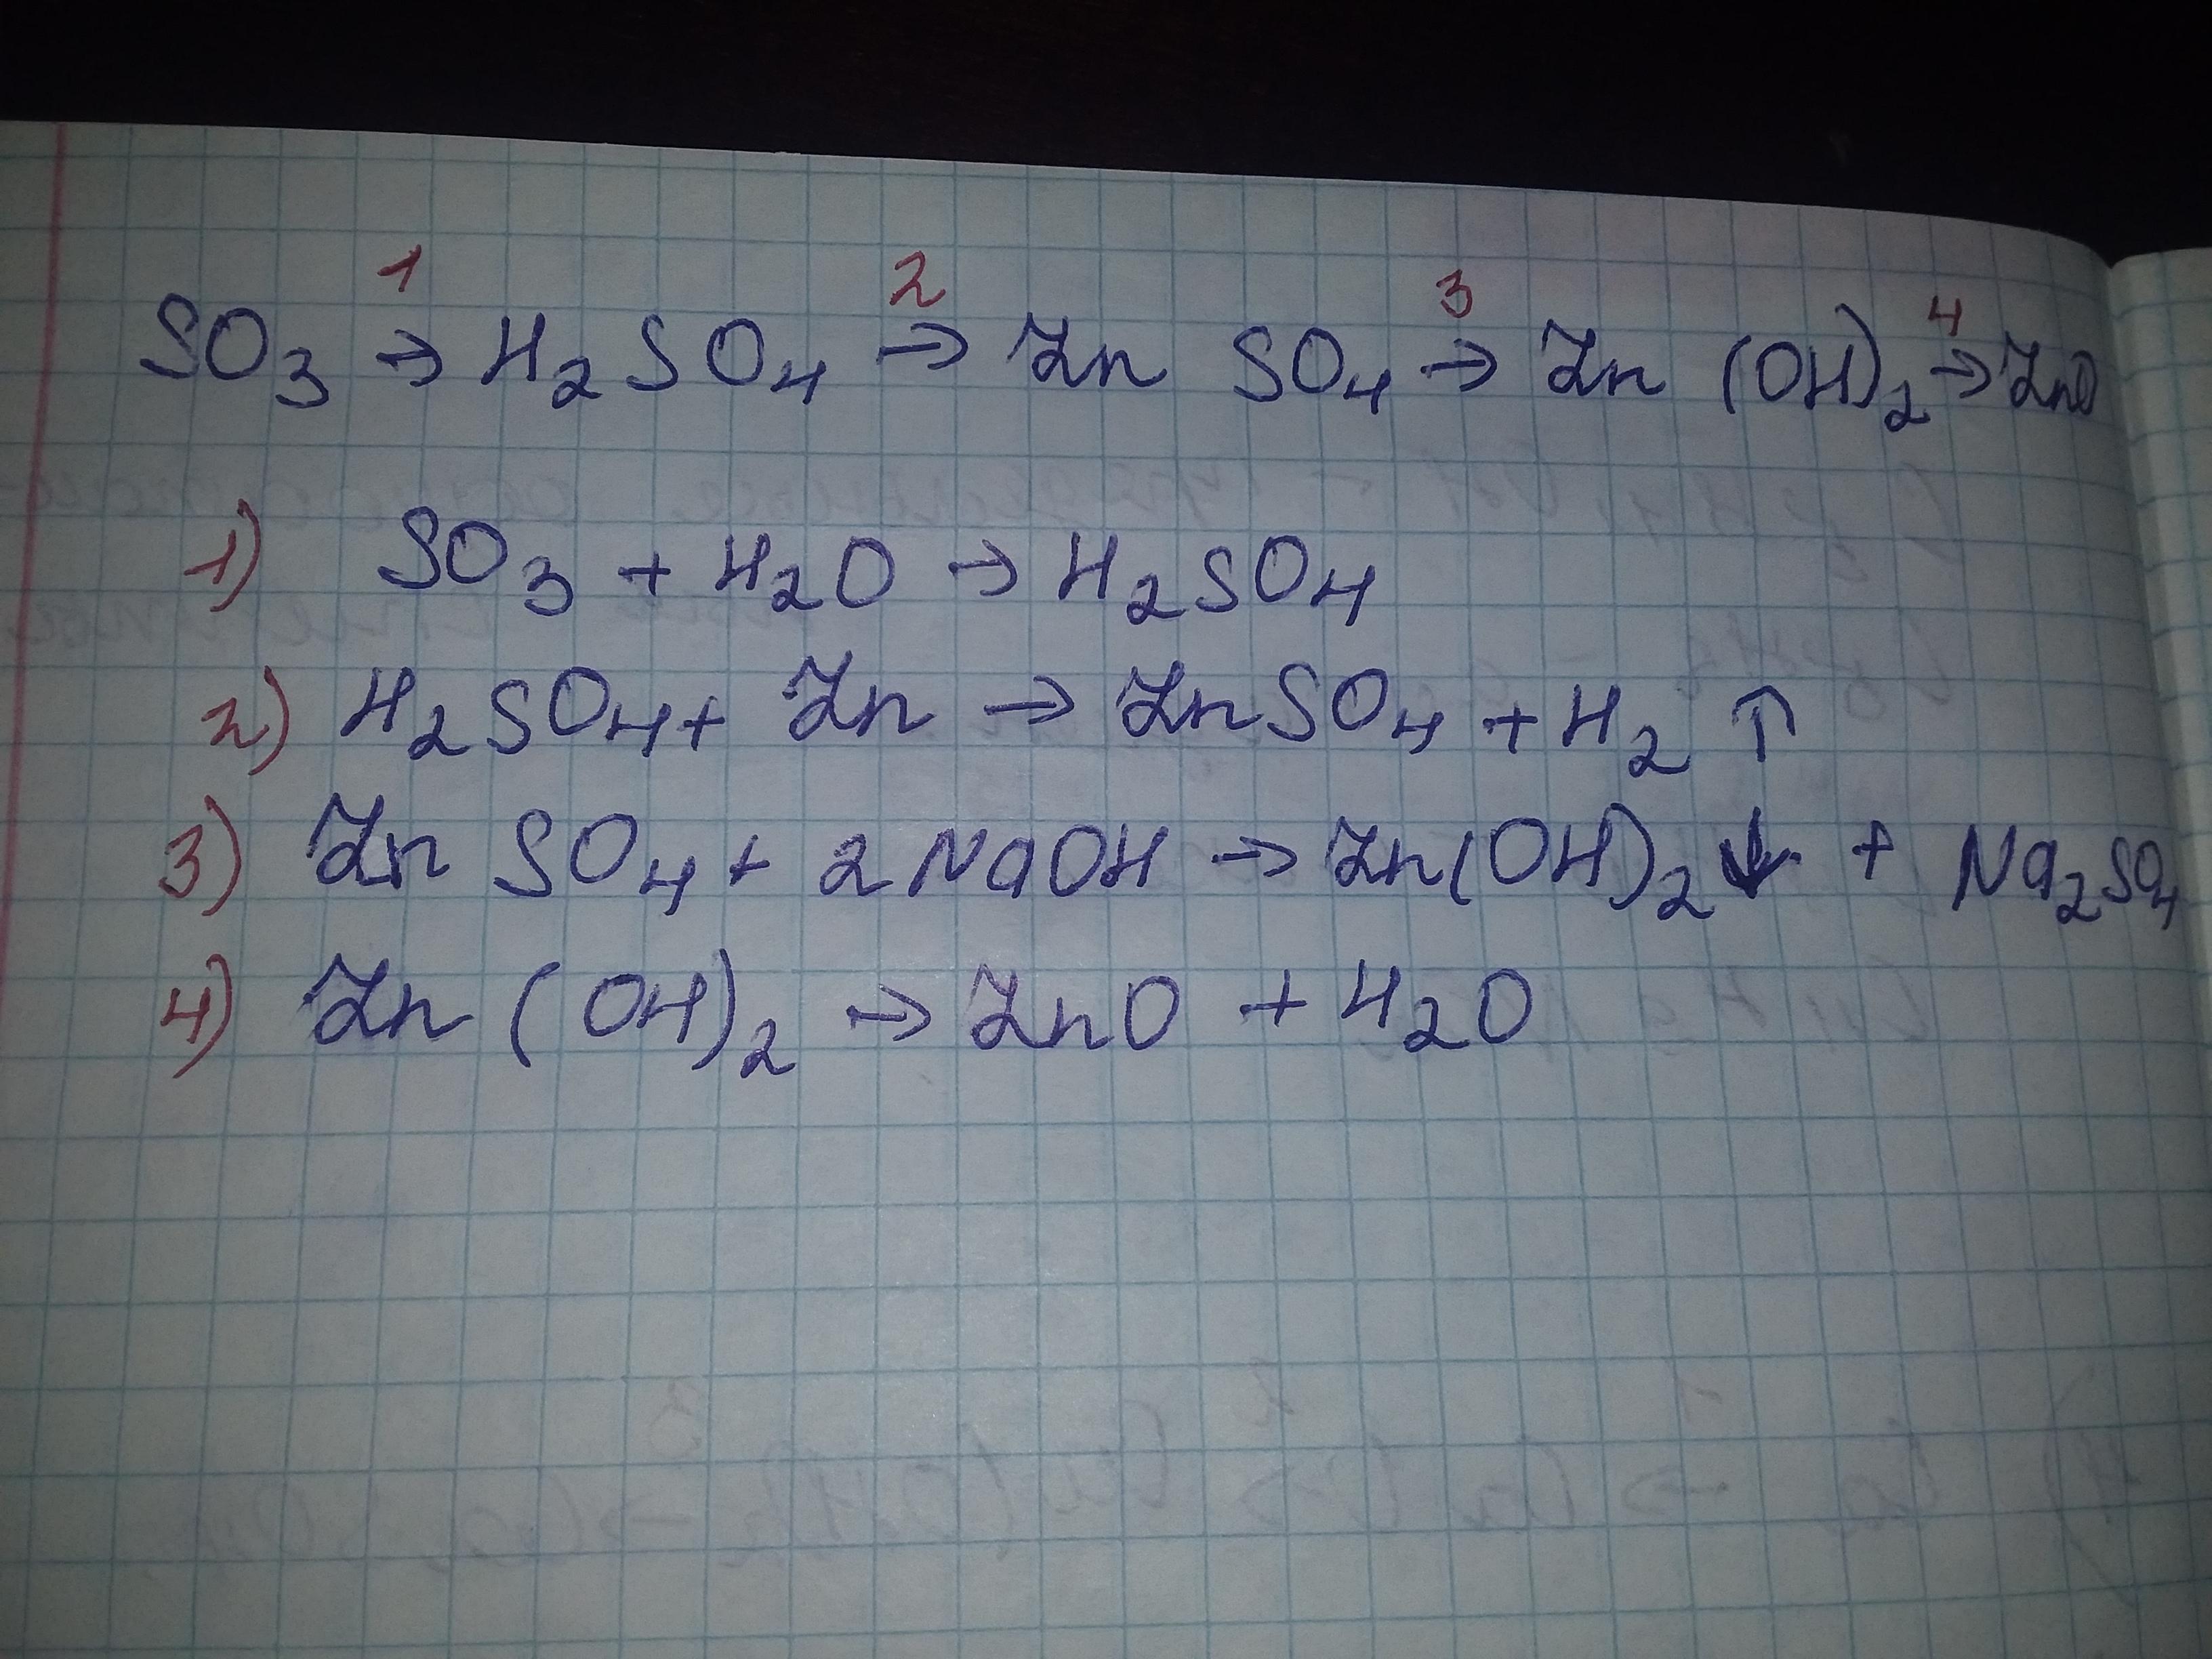 SO₃ →¹ H₂SO₄ →² Zn SO₄ →³ Zn (OH)₂ →⁴ ZnO
1) SO₃ + H₂O → H₂SO₄
2) H₂SO₄ + Zn → ZnSO₄ + H₂ ↑
3) Zn SO₄ + 2 NaOH → Zn(OH)₂ ↓ + Na₂SO₄
4) Zn (OH)₂ → ZnO + H₂O